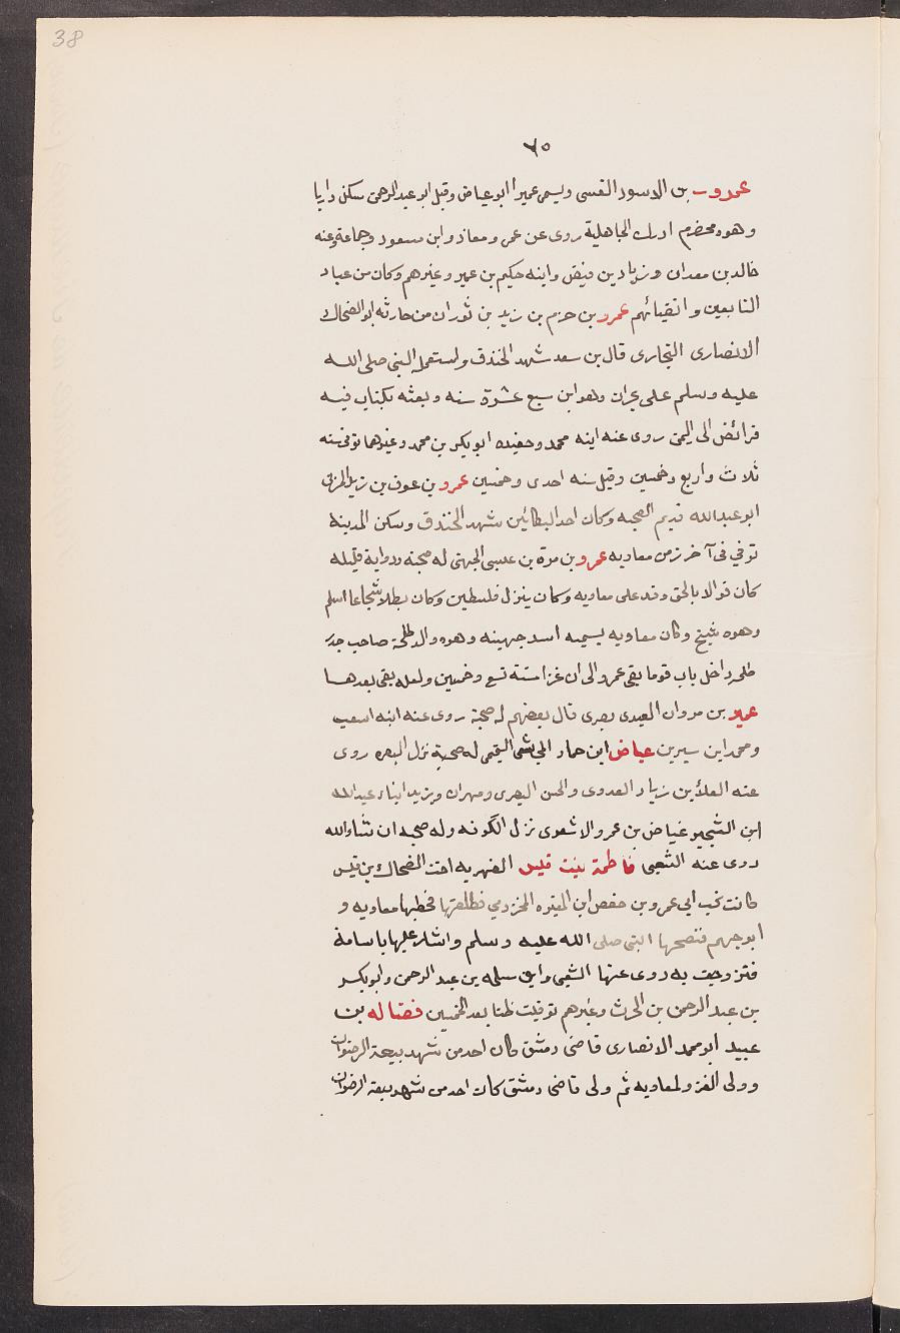 38
٦٥
عمرو بن الاسود القسى ويسمى عميرا ابو عياض وقيل ابو عبد الرحمن سكن دارايا
وهوه مخضرم ادرك الجاهلية روى عن عمر ومعاذ وابن مسعود وجماعة وعنه
خالد بن معدان وزياد بن فيض وابنه حكيم بن عمير وغيرهم وكان من عباد
التابعين واتقيائهم عمرو بن حزم بن زيد بن ثوران من حارثه ابو الضحاك
الانصارى النجارى قال بن سعد شهد الخندق واستعمله النبى صلى الله
عليه وسلم على نجران وهو ابن سبع عشرة سنه وبعثه بكتاب فيه
فرائض الى اليمن روى عنه ابنه محمد وحفيده ابو بكر بن محمد وغيرهما توفى سنه
ثلاث واربع وخمسين وقيل سنه احدى وخمسين عمرو بن عوف بن زيد المزنى
ابو عبد الله قديم الصحبه وكان احد البكائين شهد الخندق وسكن المدينة
توفي فى آخر زمن معاويه عمرو بن مرة بن عبسى الجهنى له صحبة ورواية قليله
كان قوالا بالحق وفد على معاويه وكان ينزل فلسطين وكان بطلا شجاعا اسلم
وهوه شيخ وكان معاويه يسميه اسد جهينه وهوه والد طلحة صاحب جدر
طلحه داخل باب قوما بقى عمرو الى ان غزا سنة تسع وخمسين ولعله بقى بعدها
عمير بن مروان العبدى بصرى قال بعضهم له صحبة روى عنه ابنه اسعيب
ومحمد ابن سيرين عياض ابن حمار المجاشعى التيمى له صحبة نزل البصره روى
عنه العلاء بن زياد العدوى والحسن البصرى ومهران ويزيد ابناء عبد الله
ابن الشجير غياض بن عمرو الاشعرى نزل الكوفه وله صحبه ان شاء الله
روى عنه الشعبى فاطمة بنت قيس الفهريه اخت الضحاك بن قيس
كانت تحب ابى عمرو بن حفص ابن المغيره المخزومي فطلقها فخطبها معاويه و
ابو جهم فنصحها النبى صلى الله عليه وسلم واشار عليها باسامة
فتزوجت به روى عنها الشعبى وابو سلمه بن عبد الرحمن وابو بكر
بن عبد الرحمن بن الحرث وغيرهم توفيت ظنا بعد الخمسين فضاله بن
عبيد ابو محمد الانصارى قاضى دمشق كان احد من شهد بيعة الرضوان
وولى الغزو لمعاويه ثم ولى قاضى دمشق كان احد من شهد بيعة الرضوان